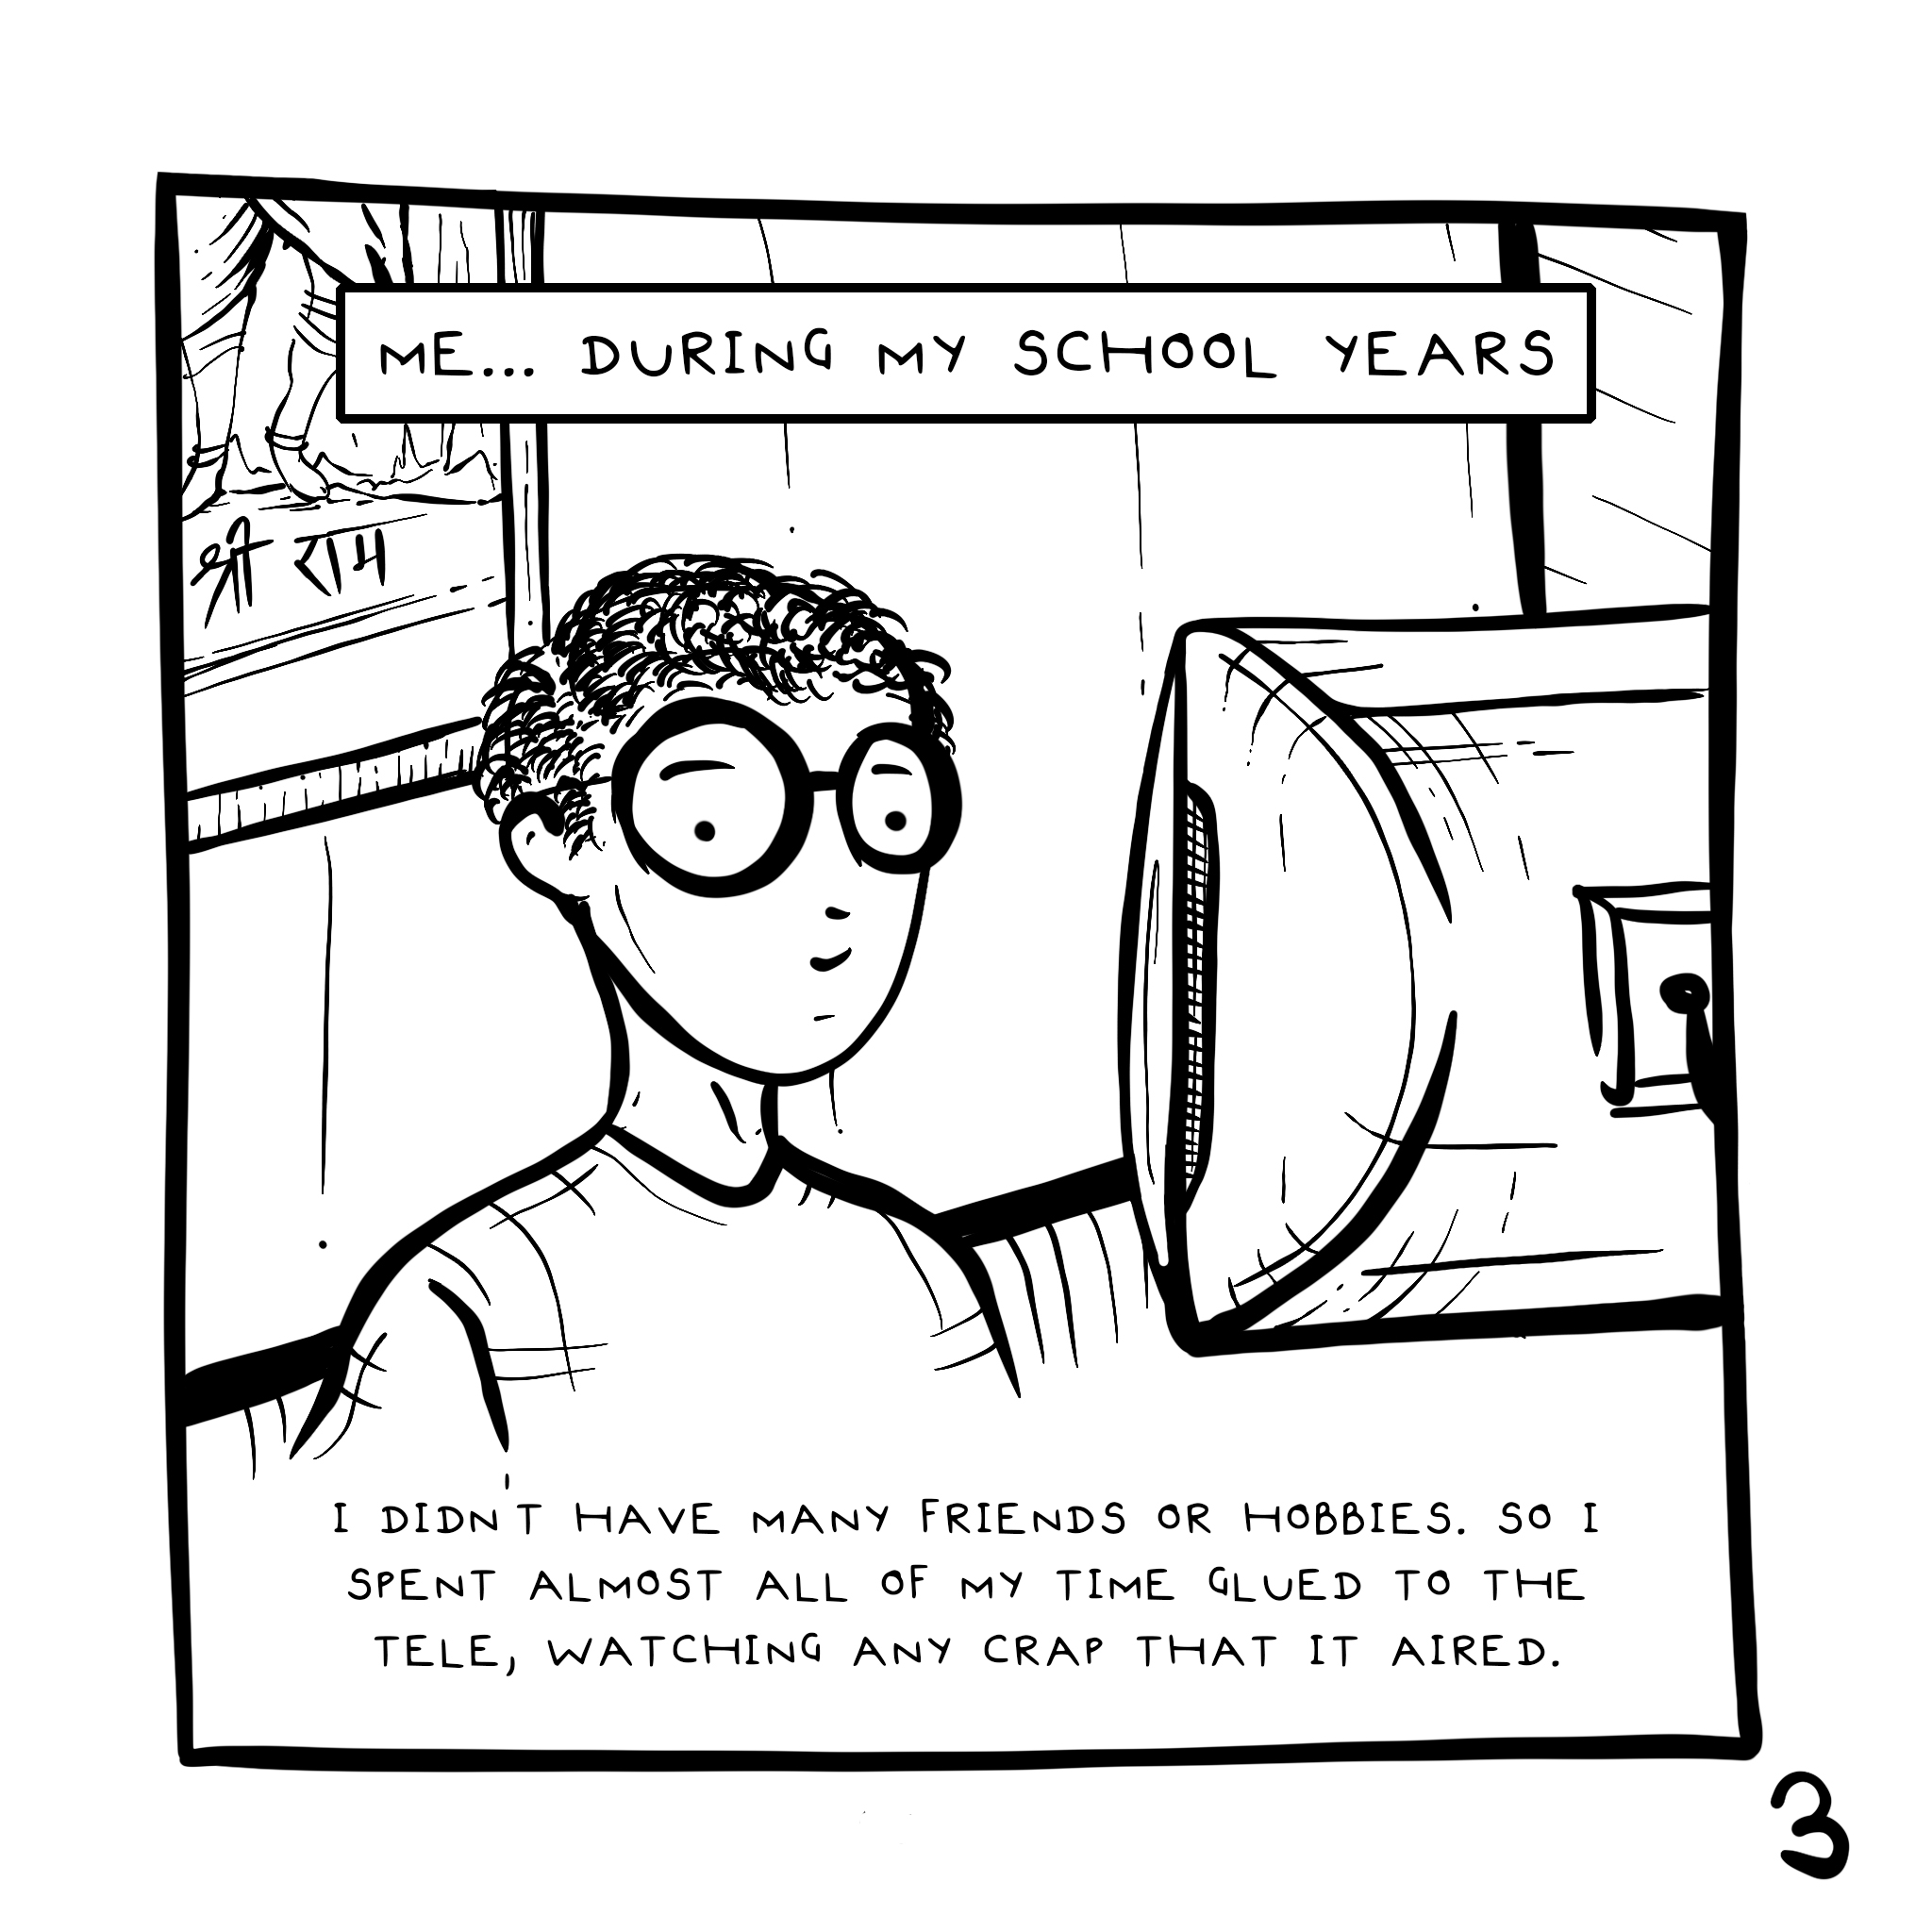 ME... DURING MY SCHOOL YEARS
श्री राम
I DIDN'T HAVE MANY FRIENDS OR HOBBIES. SO I
SPENT ALMOST ALL OF MY TIME GLUED TO THE
TELE, WATCHING ANY CRAP THAT IT AIRED.
3